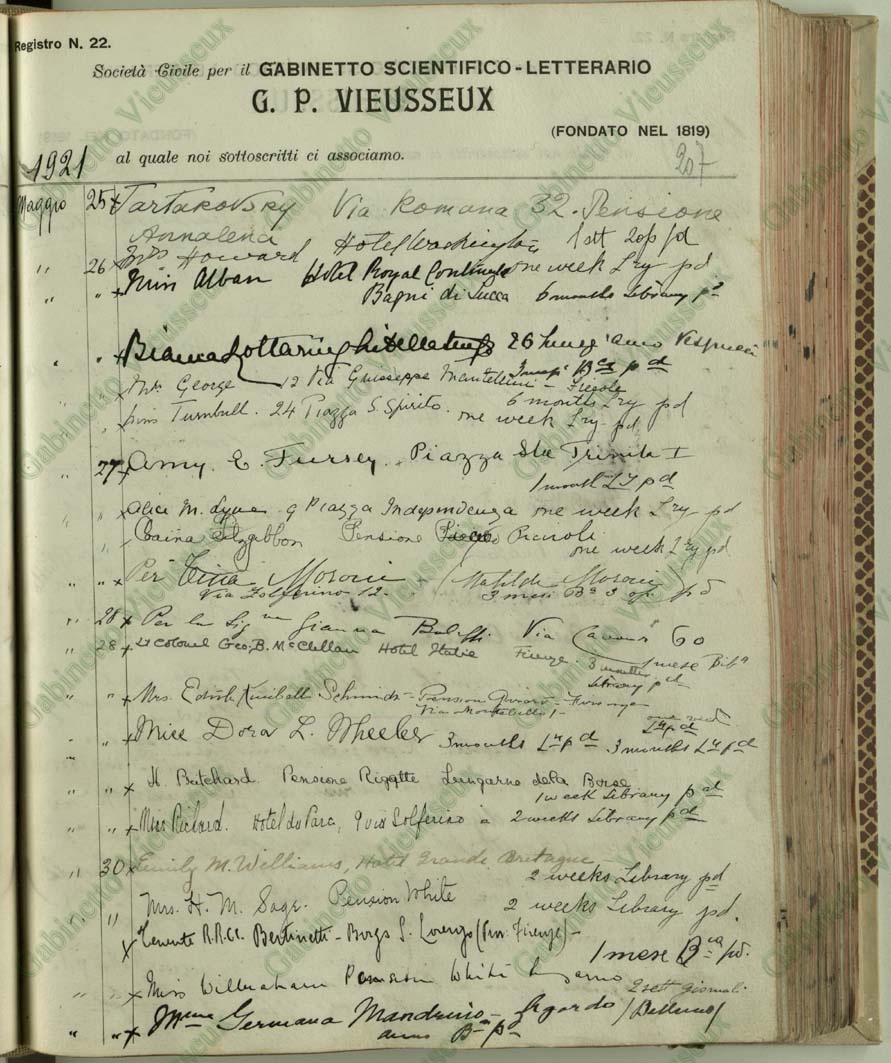 Registro N. 22.
Società Civile per il GABINETTO SCIENTIFICO-LETTERARIO
G. P. VIEUSSEUX
(FONDATO NEL 1819)
207
1921 al quale noi sottoscritti ci associamo.
Maggio 25 x Tartakovsky Via Romana 32. Pensione
Annalena 1 sett 2 op pd
26 x Mrs Howard Hotel Washington one week Lry pd
" " x Miss Alban Hotel Royal Continental
Bagni di Lucca 6 months Library pd
" " x Bianca Lottaringhi della Stufa 26 Lung'arno Vespucci
" x Mrs George 12 Via Giuseppe Mantellini - Fiesole
6 months Lry pd
" " Miss Turnbull. 24 Piazza S. Spirito. one week Lry pd
" 27 x Amy. E. Fursey. Piazza Sta Trinita 1
1 month Ly pd
" " x Alice M. Lyne 9 Piazza Indipendenza one week Lry pd
" " Fitzgibbon Pensione Piccioli
one week Lry pd
" " x Per Moroni (Matilde Moroni)
Via Solferino 12. 3 mesi Ba 3 op. pd
" 28 x Per la Signa Gianna Via Cavour 60
1 mese Biba
" 28 x Lt Colonel Geo. B. McClellan Hotel Italie Firenze. 3 months
Library pd
" " x Mrs. Edith Kimball Schmidt - Pension
Via Montebello 1 -
" " x Miss Dora L. Wheeler 3 months Lry pd 3 months Lry pd
" " x H. Batchard Pensione Rigatti Lungarno della Borsa
1 week Library pd
" " x Miss Rickard. Hotel du Parc, 9 via Solferino a 2 weeks Library pd
" 30 x Emily M. Williams, Hotel Grande Bretagne -
2 weeks Library pd
" " Mrs. H. M. Sage. Pension White 2 weeks Library pd.
x Tenente R.R.CC. Bertinetti - Borgo S. Lorenzo (Prov. Firenze) -
1 mese Bca pd.
" " x Miss Wilbraham Pension White Lungarno
2 sett
" " x Mme Germana Mandruzzo - Agordo (Belluno)
anno B- p-